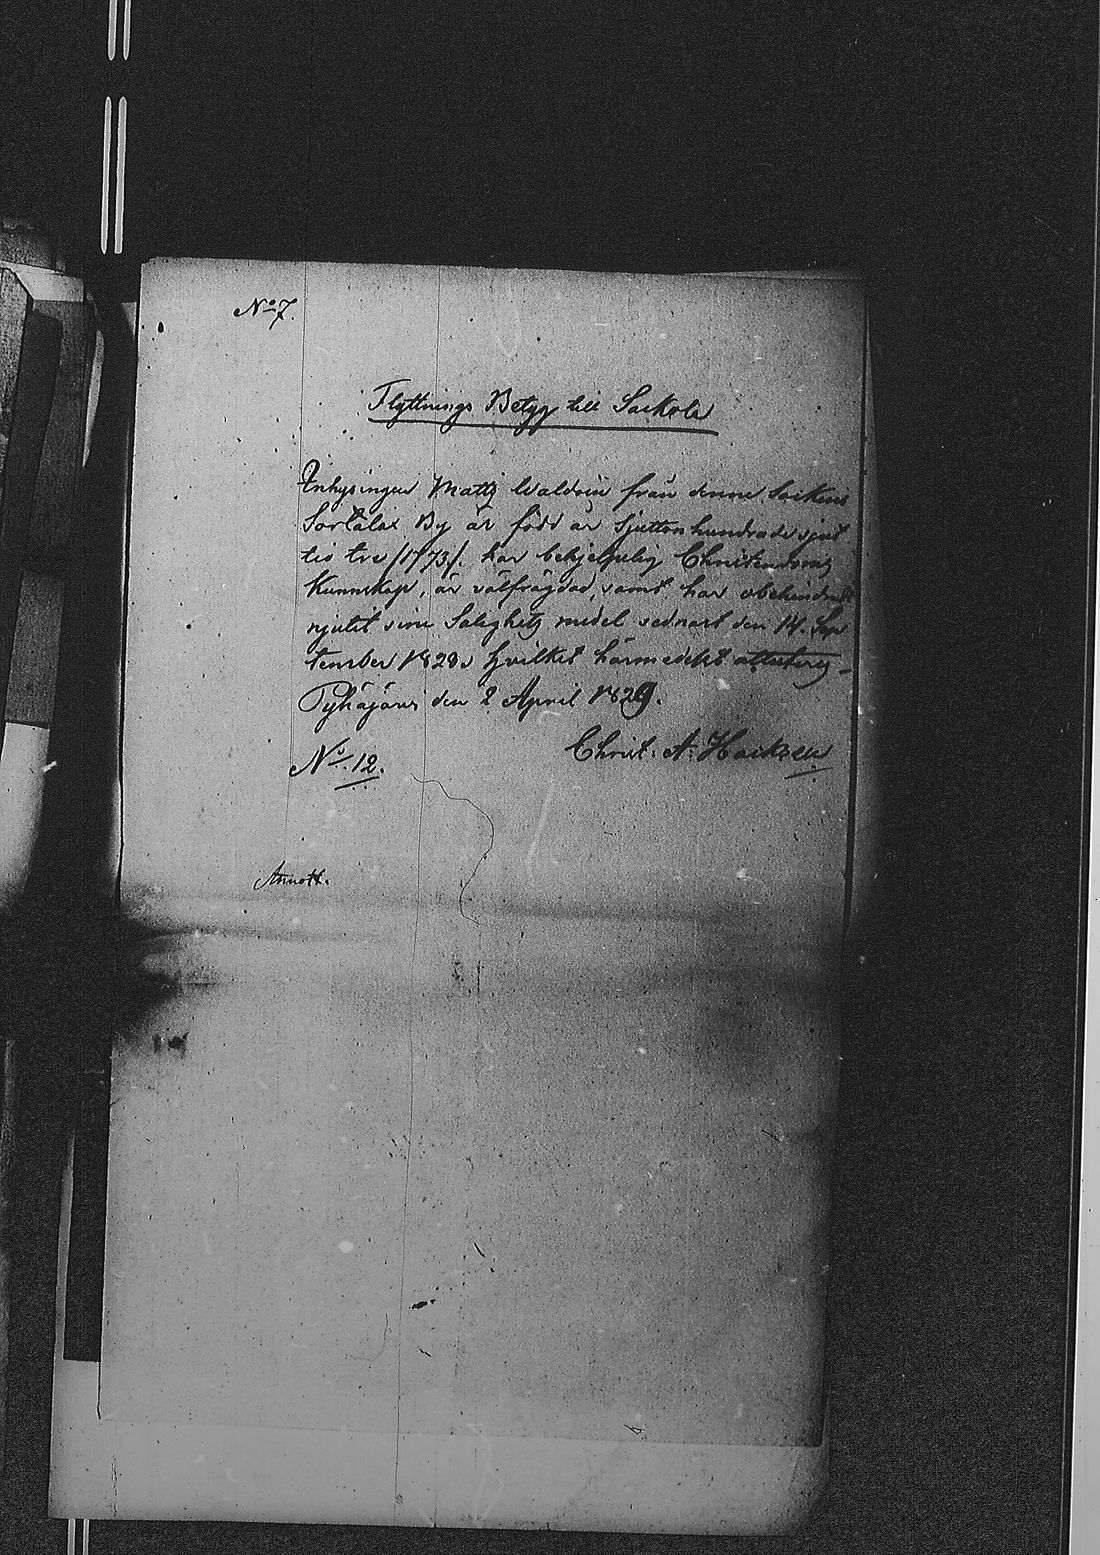 No 7.
Flyttnings Betyg till Sackola
Inhysingen Matts Waldoin från denne Sockens
Sortalax By är född år Sjuttonhundrade sjut
tio tre /1773/. har behjelpelig Christendoms
Kunnskap, är välfrägdad, samt har obehindradt
njutit sine Salighets medel sednast den 14. Sep
tember 1828. Hvilket härmedelst attesteras
Pyhäjärvi den 2 April 1829.
Christ. A. Hacksell
No. 12.
Annott.